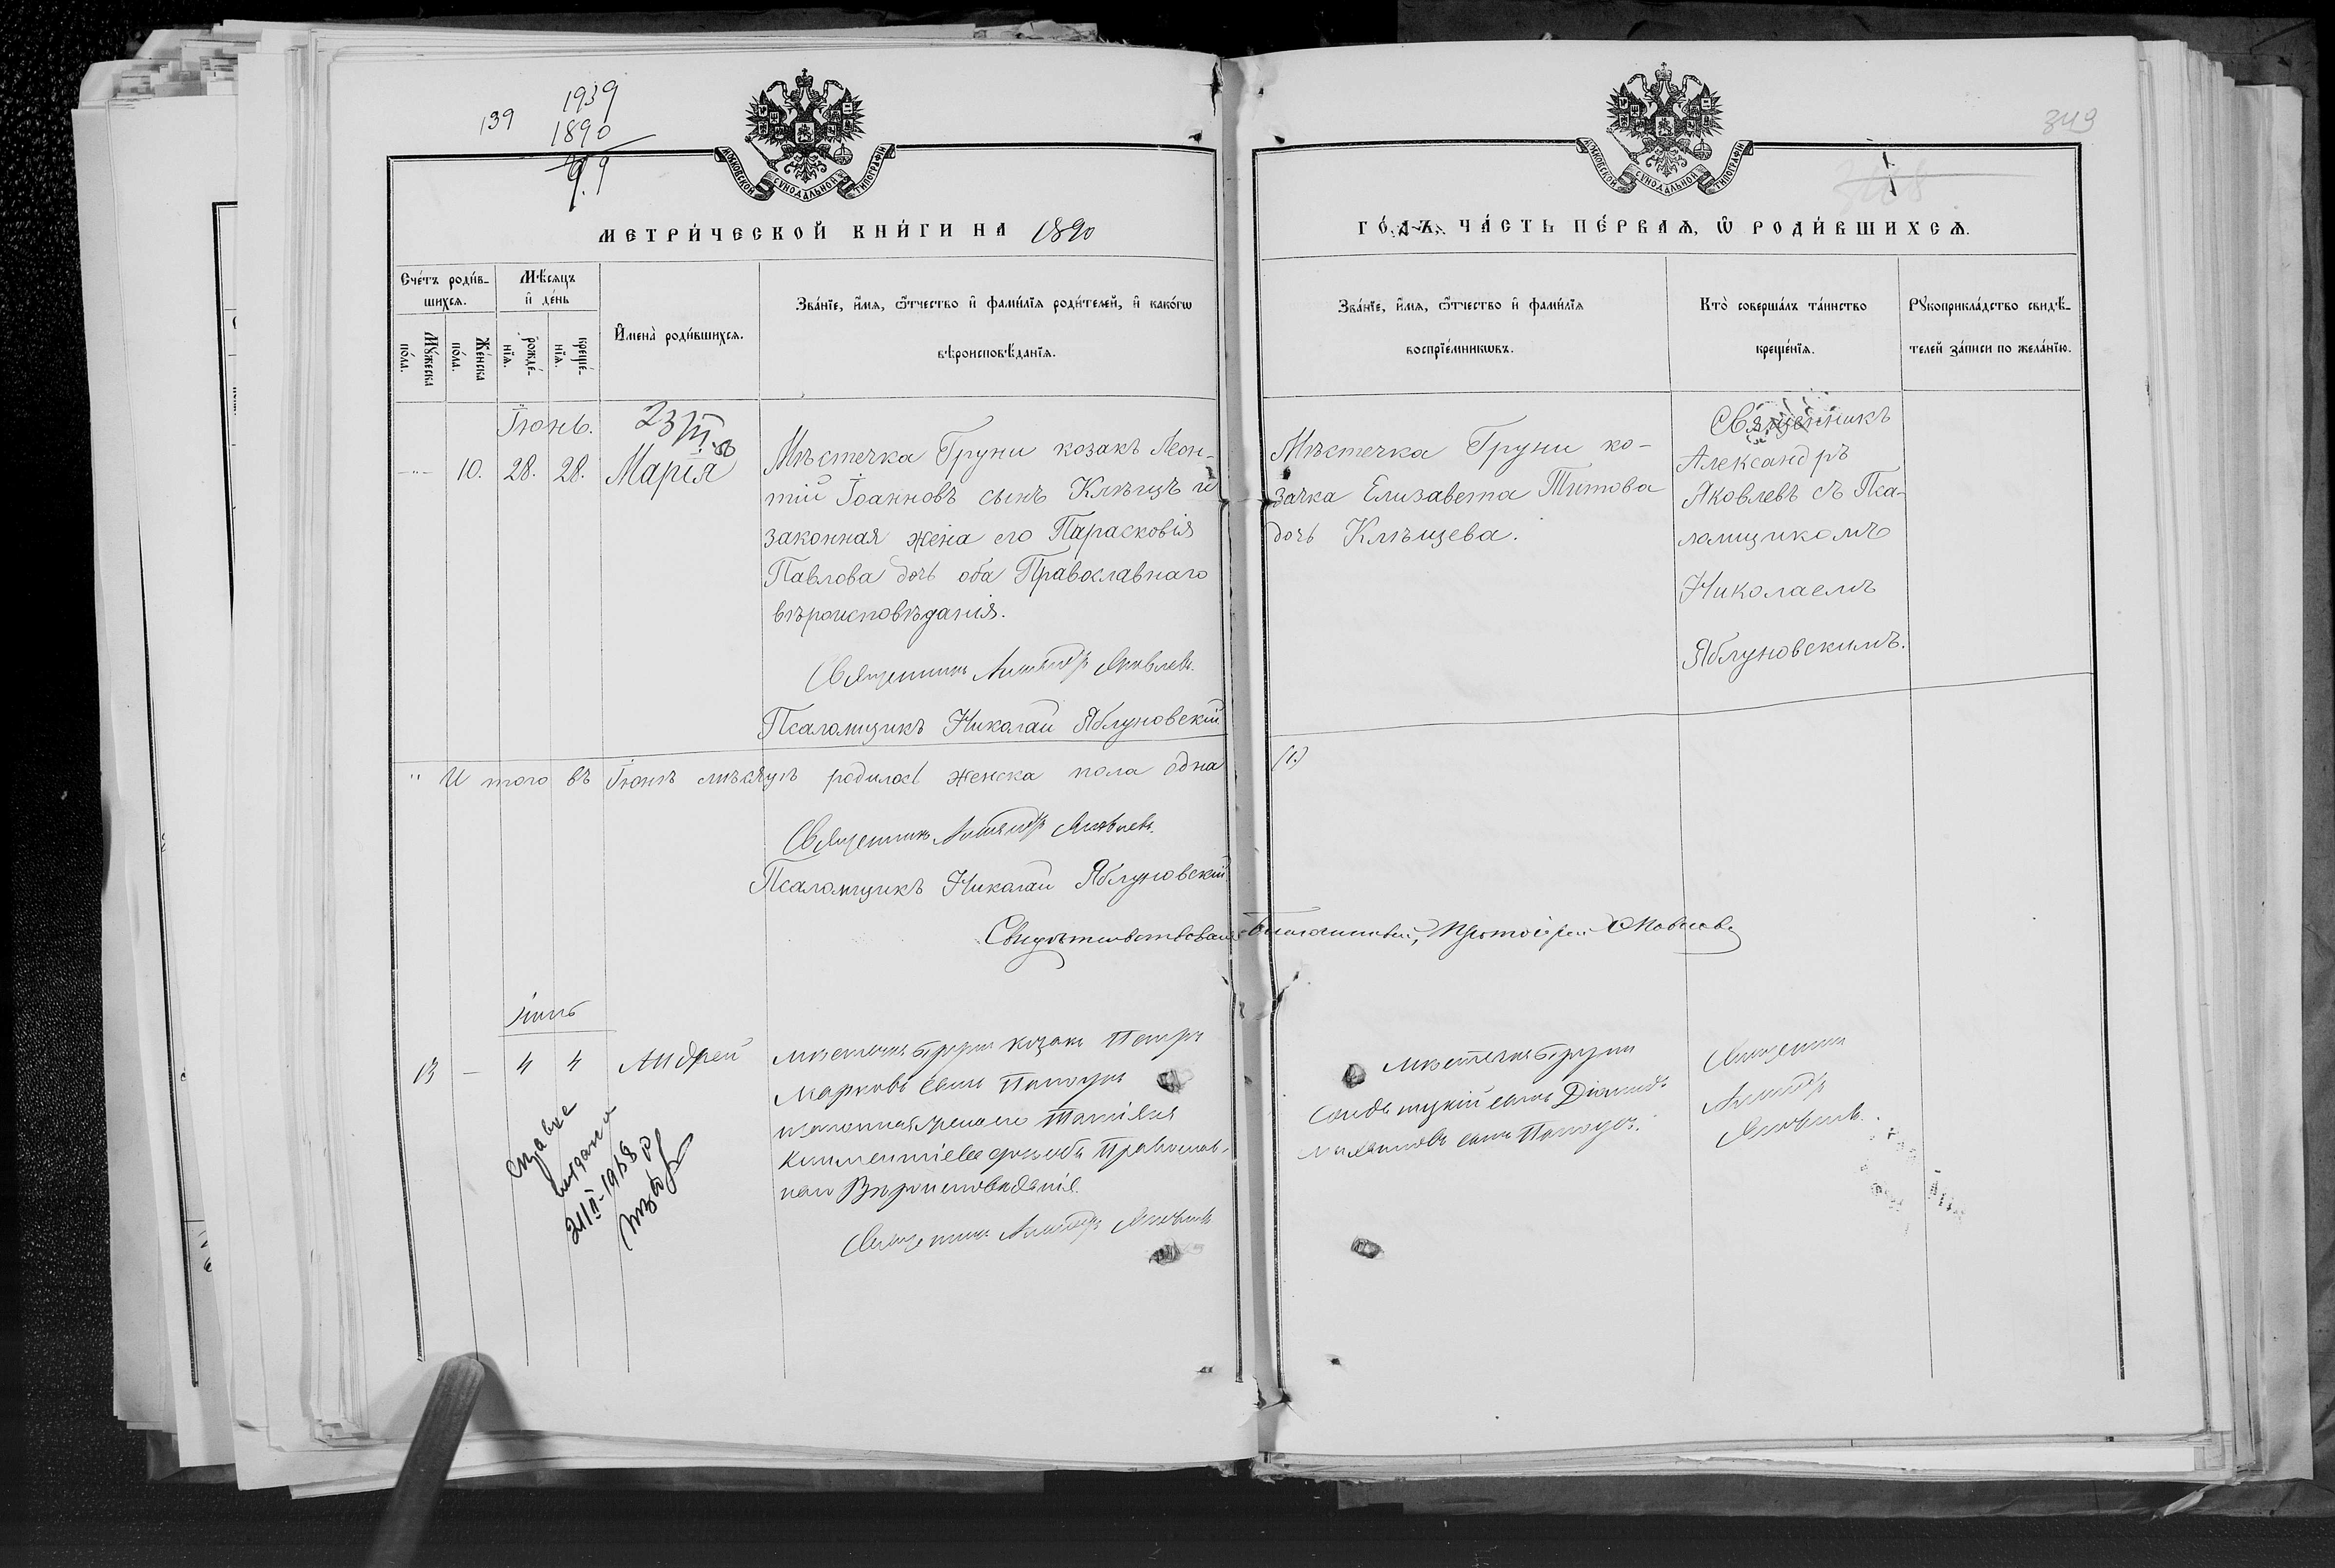 139
1939
1890
349
МОСКОВСКОЙ СѴНОДАЛЬНОЙ ТИПОГРАФІИ
МОСКОВСКОЙ СѴНОДАЛЬНОЙ ТИПОГРАФІИ
МЕТРИ́ЧЕСКОЙ КНИ́ГИ НА 1890
ГО́ДЪ, ЧА́СТЬ ПЕ́РВАЯ, Ѿ РОДИ́ВШИХСѦ.
Сче́тъ роди́в-
шихсѧ.
Мꙋ́жеска
по́ла.
Же́нска
по́ла.
Мѣ́сѧцъ
и҆ де́нь
рожде́-
нїѧ.
креще́-
нїѧ.
И҆мена̀ роди́вшихсѧ.
Зва́нїе, и҆́мѧ, ѻ҆́тчество и҆ фами́лїѧ роди́телей, и҆ како́гѡ
вѣроисповѣ́данїѧ.
Зва́нїе, и҆́мѧ, ѻ҆́тчество и҆ фами́лїѧ
воспрїе́мникѡвъ.
Кто̀ соверша́лъ та́инство
креще́нїѧ.
Рꙋкоприкла́дство свидѣ́-
телей за́писи по жела́нїю.
Іюнь.
10. 28. 28. Марія
Мѣстечка Груни козакъ Леон-
тій Іоанновъ сынъ Клѣщъ и
законная жена его Парасковія
Павлова дочь оба Православнаго
вѣроисповѣданія.
Священникъ Александръ Яковлевъ.
Псаломщикъ Николай Яблуновскій
Мѣстечка Груни ко-
зачка Елизавета Титова
дочь Клѣщева.
Священникъ
Александръ
Яковлевъ съ Пса-
ломщикомъ
Николаемъ
Яблуновскимъ.
" И того въ Іюнѣ мѣсяцѣ родилось женска пола одна (1.)
Священникъ Александръ Яковлевъ.
Псаломщикъ Николай Яблуновскій
Свидѣтельствовалъ Благочинный, Протоіерей
Іюль
13 — 4 4 Андрей
Мѣстечка Груни козакъ Петръ
Марковъ сынъ
законная жена его
дочь оба Православ-
наго Вѣроисповѣданія.
Священникъ Александръ Яковлевъ
Мѣстечка Груни
сынъ
сынъ
Священникъ
Александръ
Яковлевъ.